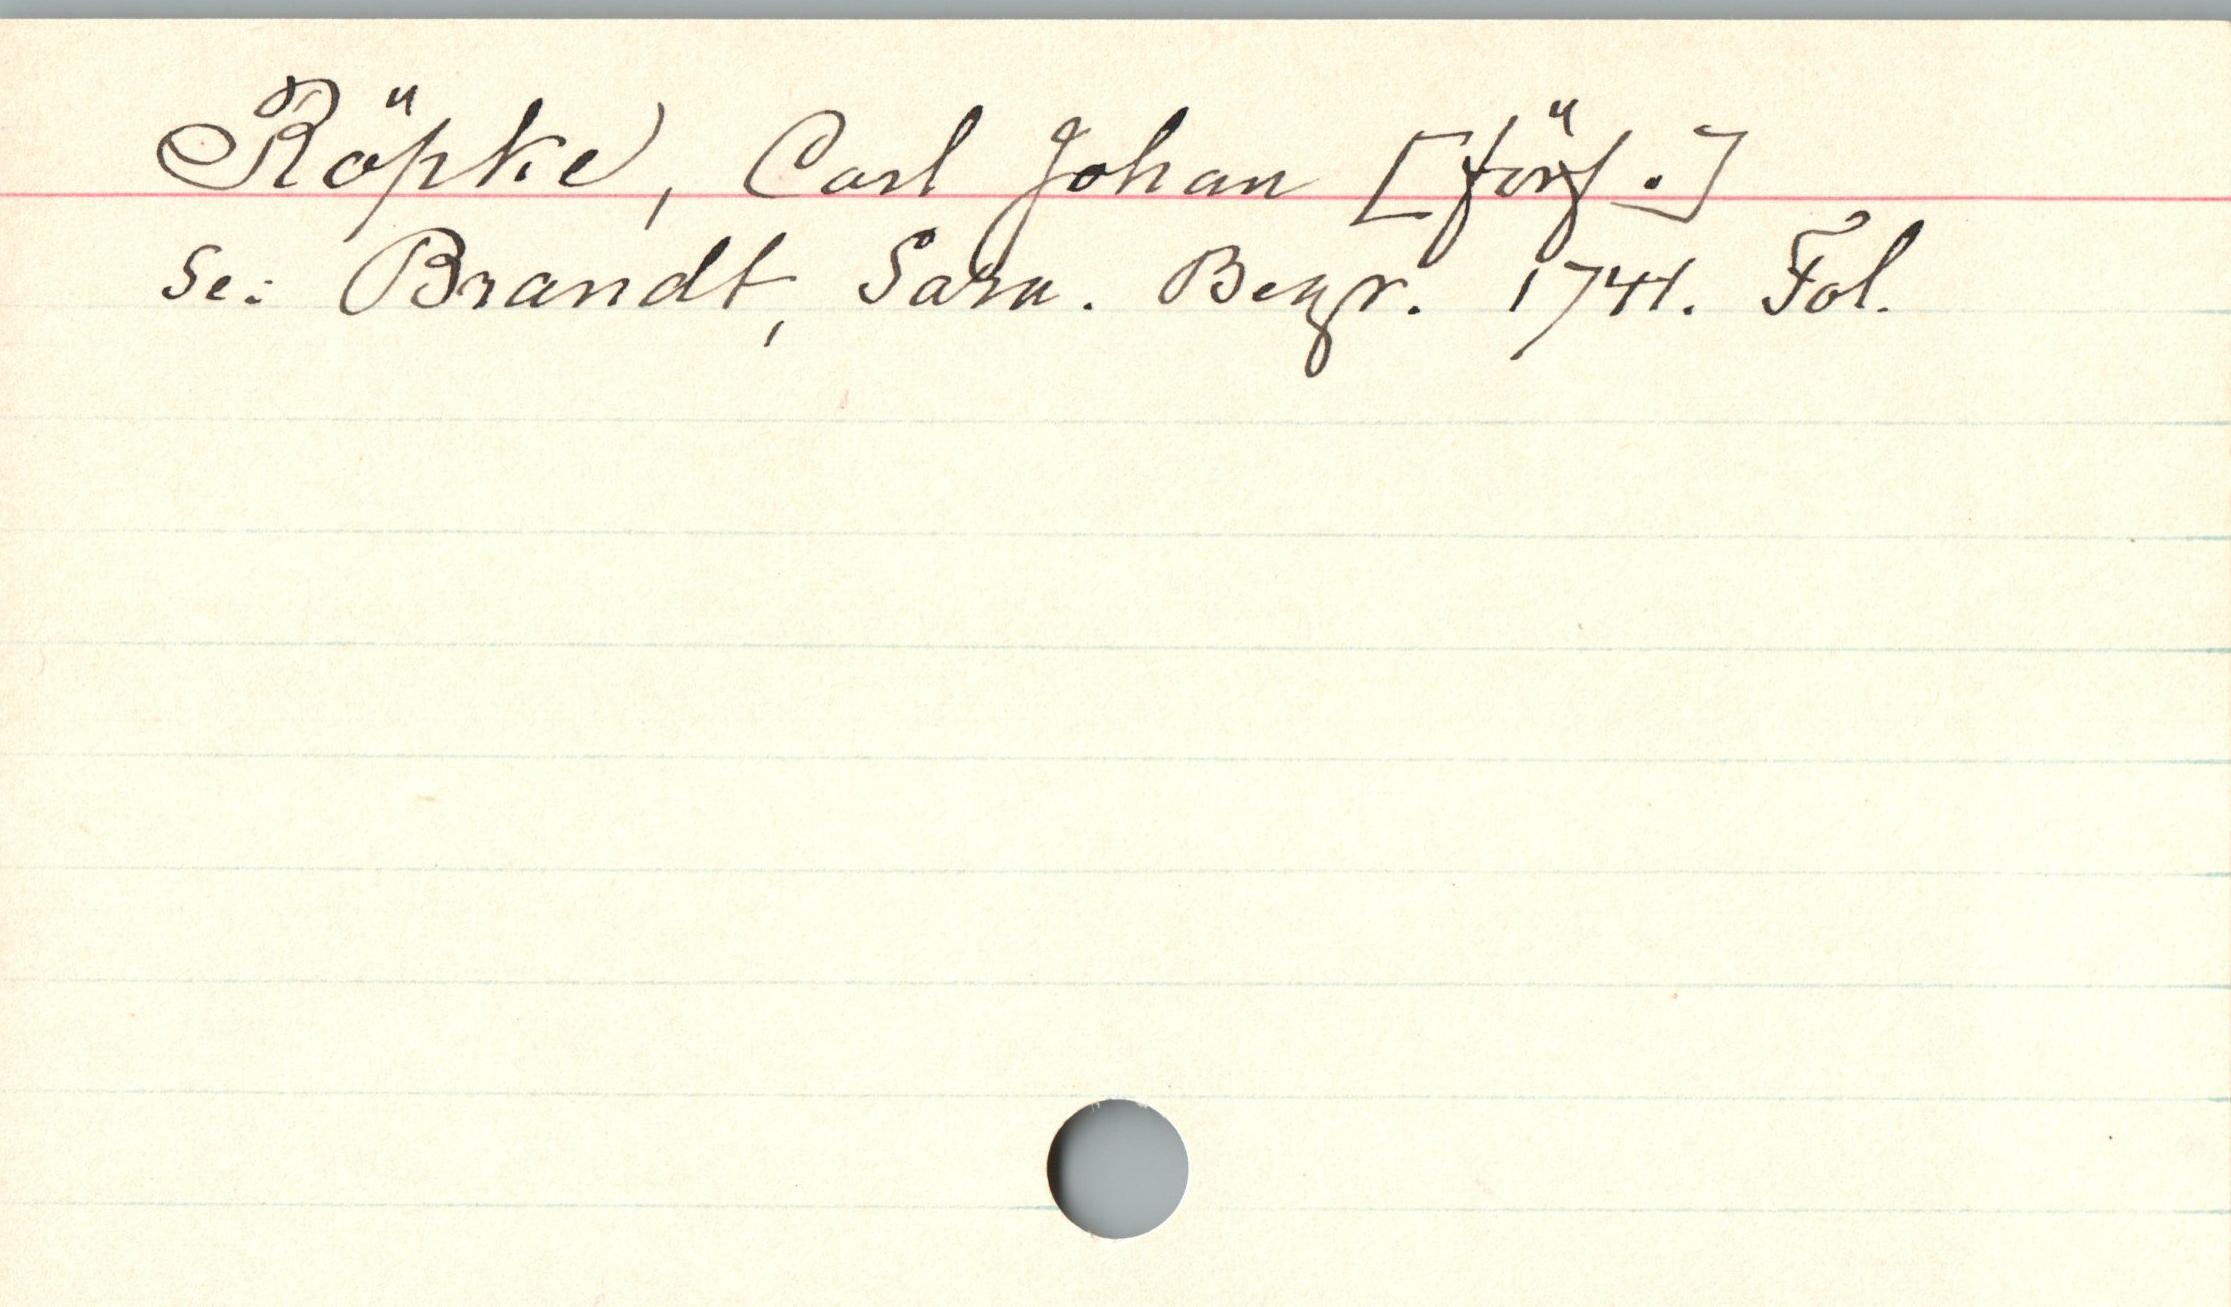 Röpke, Carl Johan [förf.]
se: Brandt, Sara. Begr. 1741. Fol.